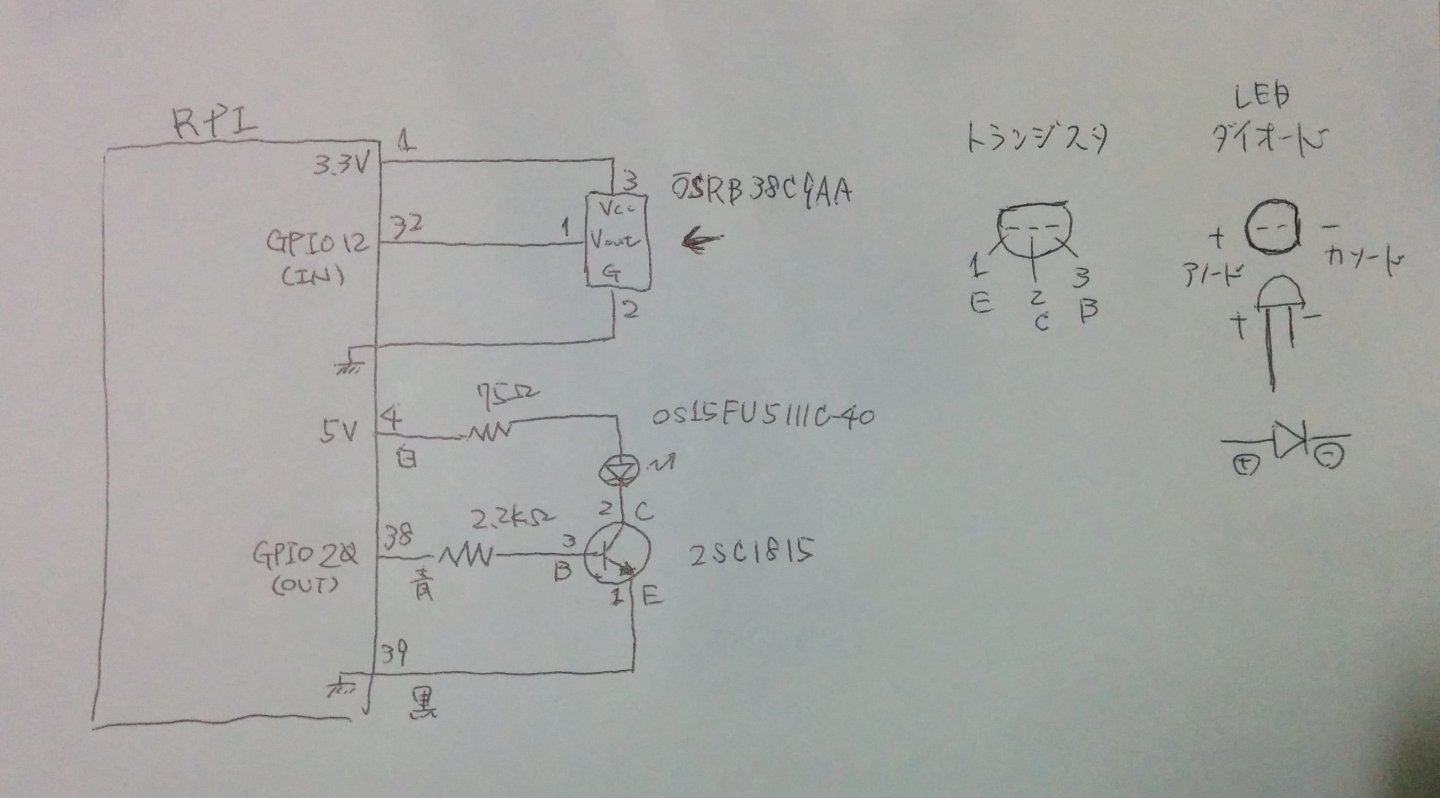 RPI
3.3V
1
GPIO 12
(IN)
32
1
3
Vcc
Vout
G
2
OSRB38C9AA
5V
4
白
75Ω
OS15FU5111C-40
GPIO 20
(OUT)
38
青
2.2kΩ
3
B
2 C
1 E
2SC1815
39
黒
トランジスタ
1
E
2
C
3
B
LED
ダイオード
+
アノード
-
カソード
+
-
+
-